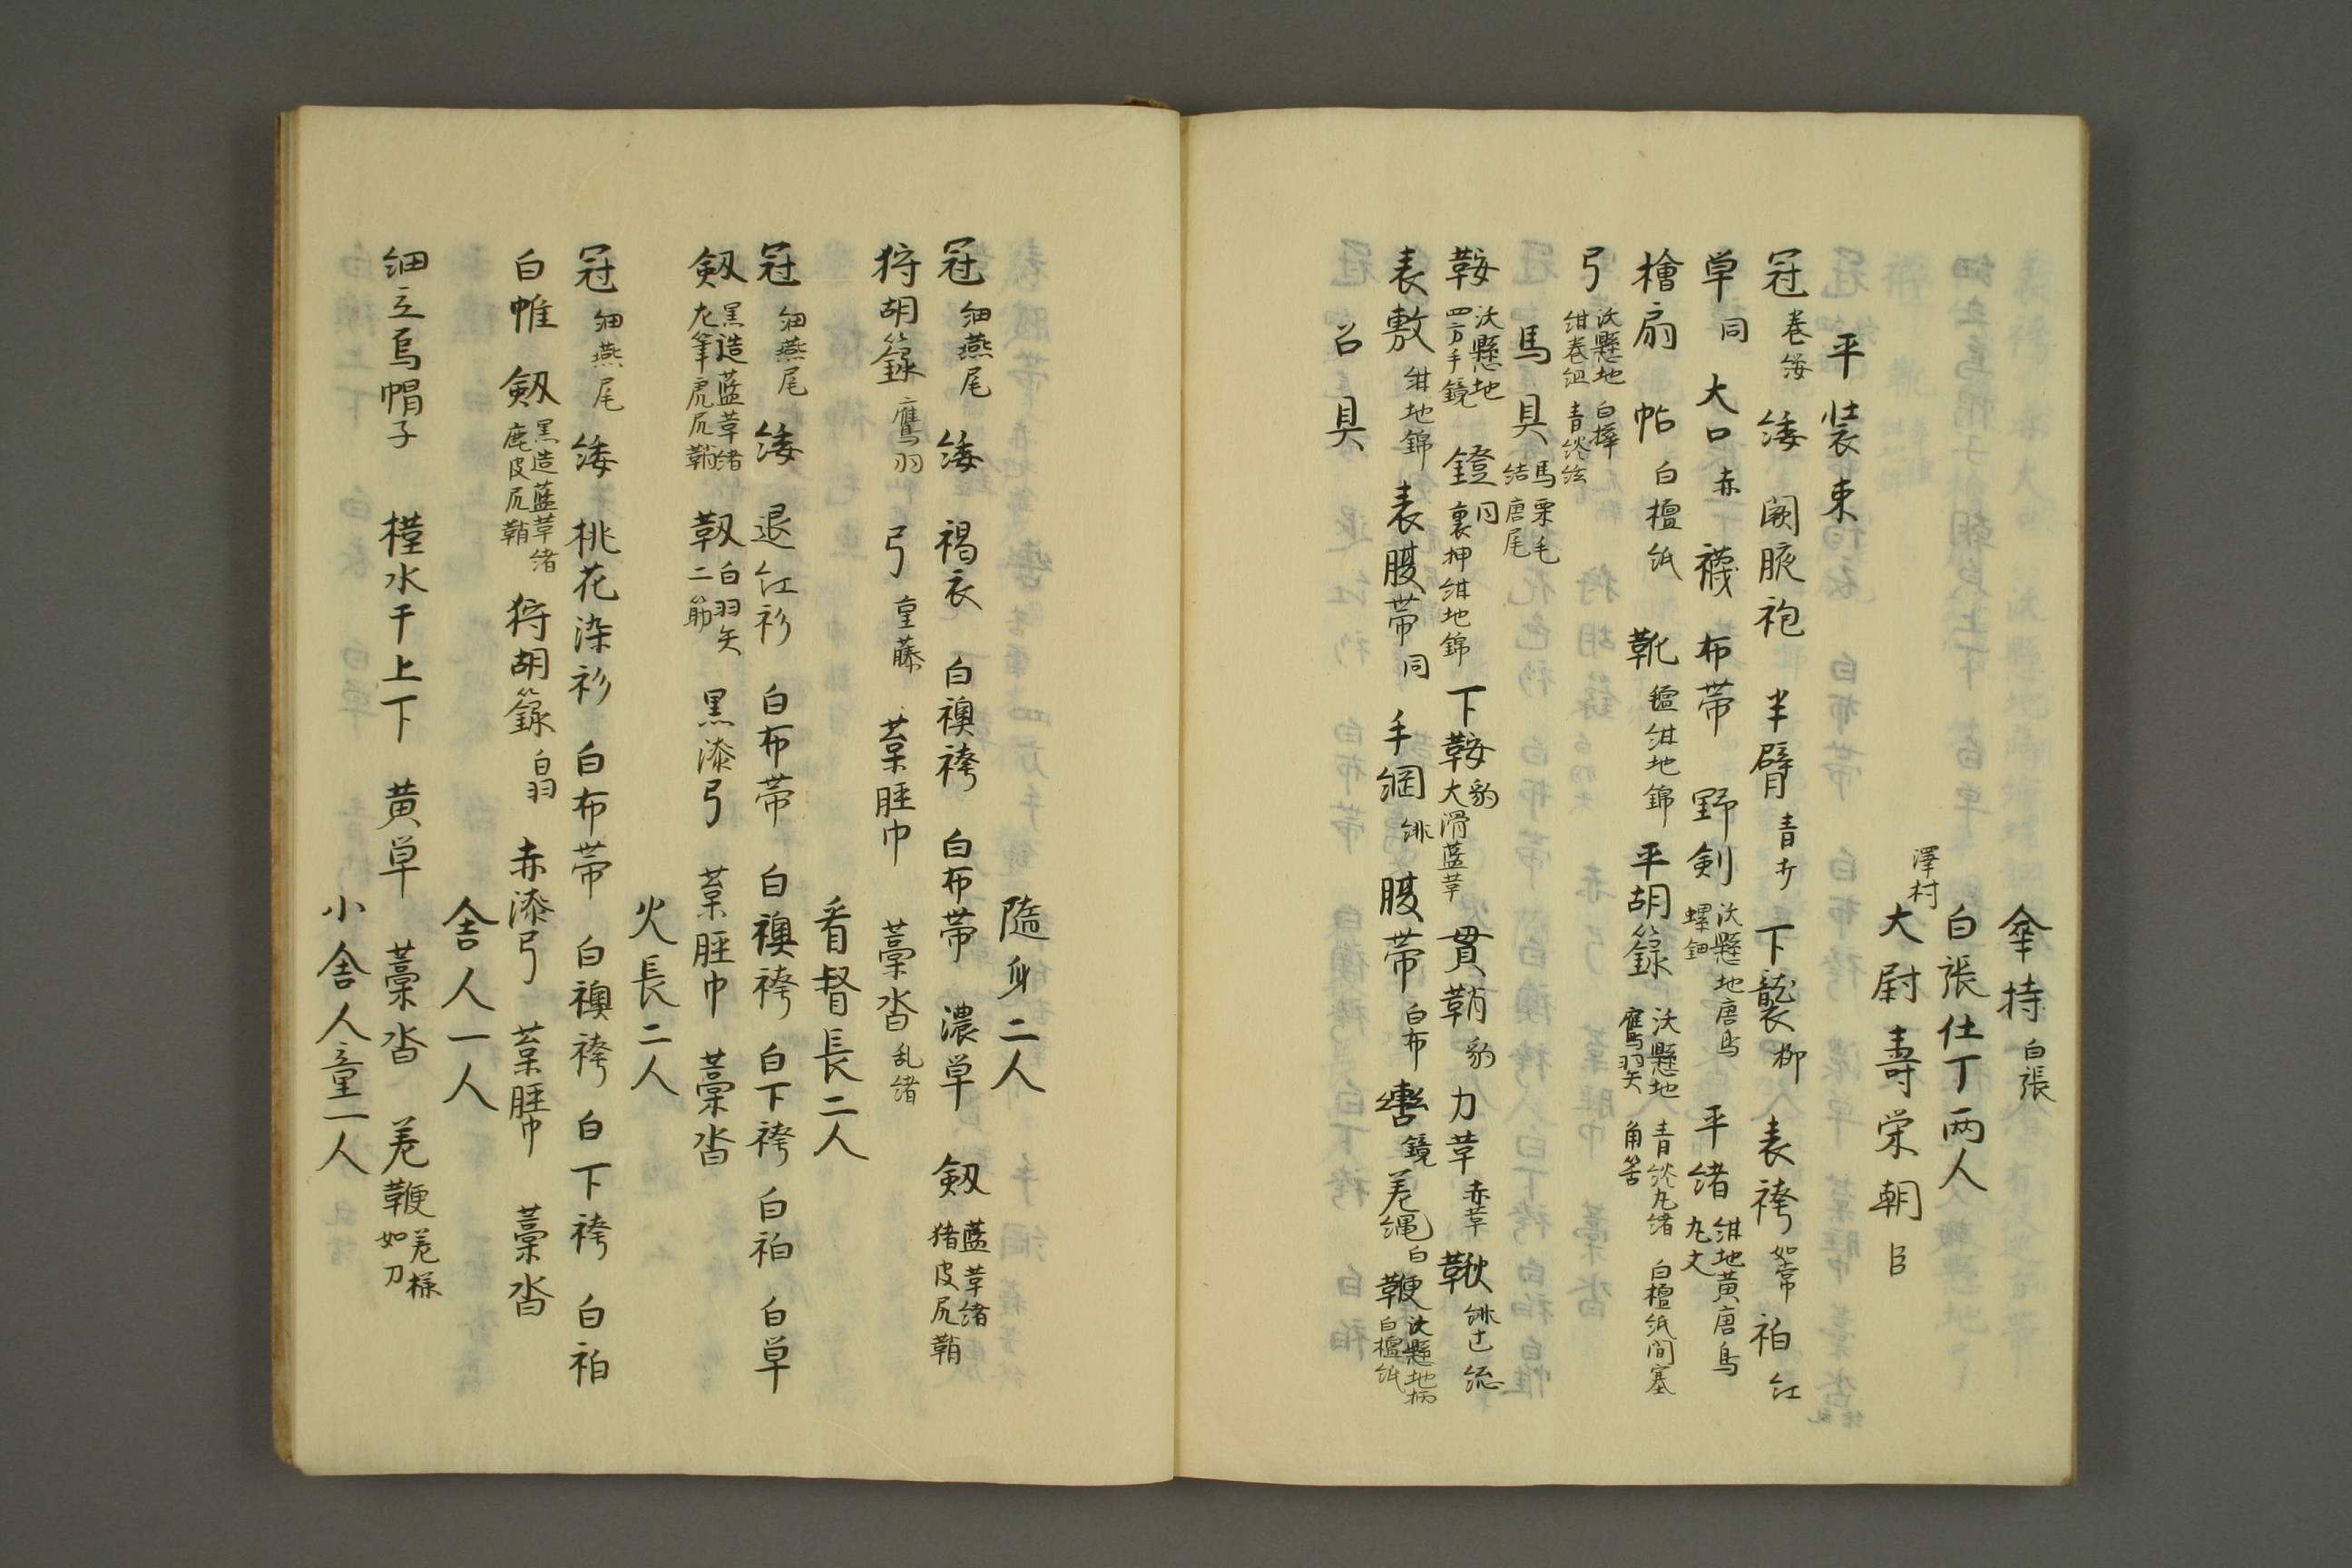 傘持 白張
白張仕丁両人
澤村
大尉壽栄朝臣
平装束
冠 巻纓 緌 闕腋袍 半臂 青朽 下襲 柳 表袴 如常 袙 紅
単 同 大口 赤 襪 布帯 野剣 沃懸地唐鳥 螺鈿 平緒 紺地黄唐鳥 丸文
檜扇 帖 白檀紙 靴 氈紺地錦 平胡籙 沃懸地 鷹羽矢 青淡丸緒 角筈 白檀紙間塞
弓 沃懸地 紺巻組 白檀 青淡絃
馬具 馬栗毛 結唐尾
鞍 沃懸地 四方手鏡 鐙 同 裏押紺地錦 下鞍 豹 大滑藍革 貫鞘 豹 力革 赤革 鞦 絲七流
表敷 紺地錦 表腹帯 同 手綱 絲 腹帯 白布 轡 鏡 差縄 白 鞭 沃懸地柄 白檀紙
召具
隨身二人
冠 細燕尾 緌 褐衣 白襖袴 白布帯 濃単 剱 藍革緒 猪皮尻鞘
狩胡籙 鷹羽 弓 重藤 葉脛巾 藁沓 乱緒
看督長二人
冠 細燕尾 緌 退紅衫 白布帯 白襖袴 白下袴 白袙 白単
剱 黒造藍革緒 虎尻鞘 白羽矢 二筋 黒漆弓 葉脛巾 藁沓
火長二人
冠 細燕尾 緌 桃花染衫 白布帯 白襖袴 白下袴 白袙
白帷 剱 黒造藍革緒 鹿皮尻鞘 狩胡籙 白羽 赤漆弓 葉脛巾 藁沓
舎人一人
細立烏帽子 樺水干上下 黄単 藁沓 差鞭 差様 如刀
小舎人童一人